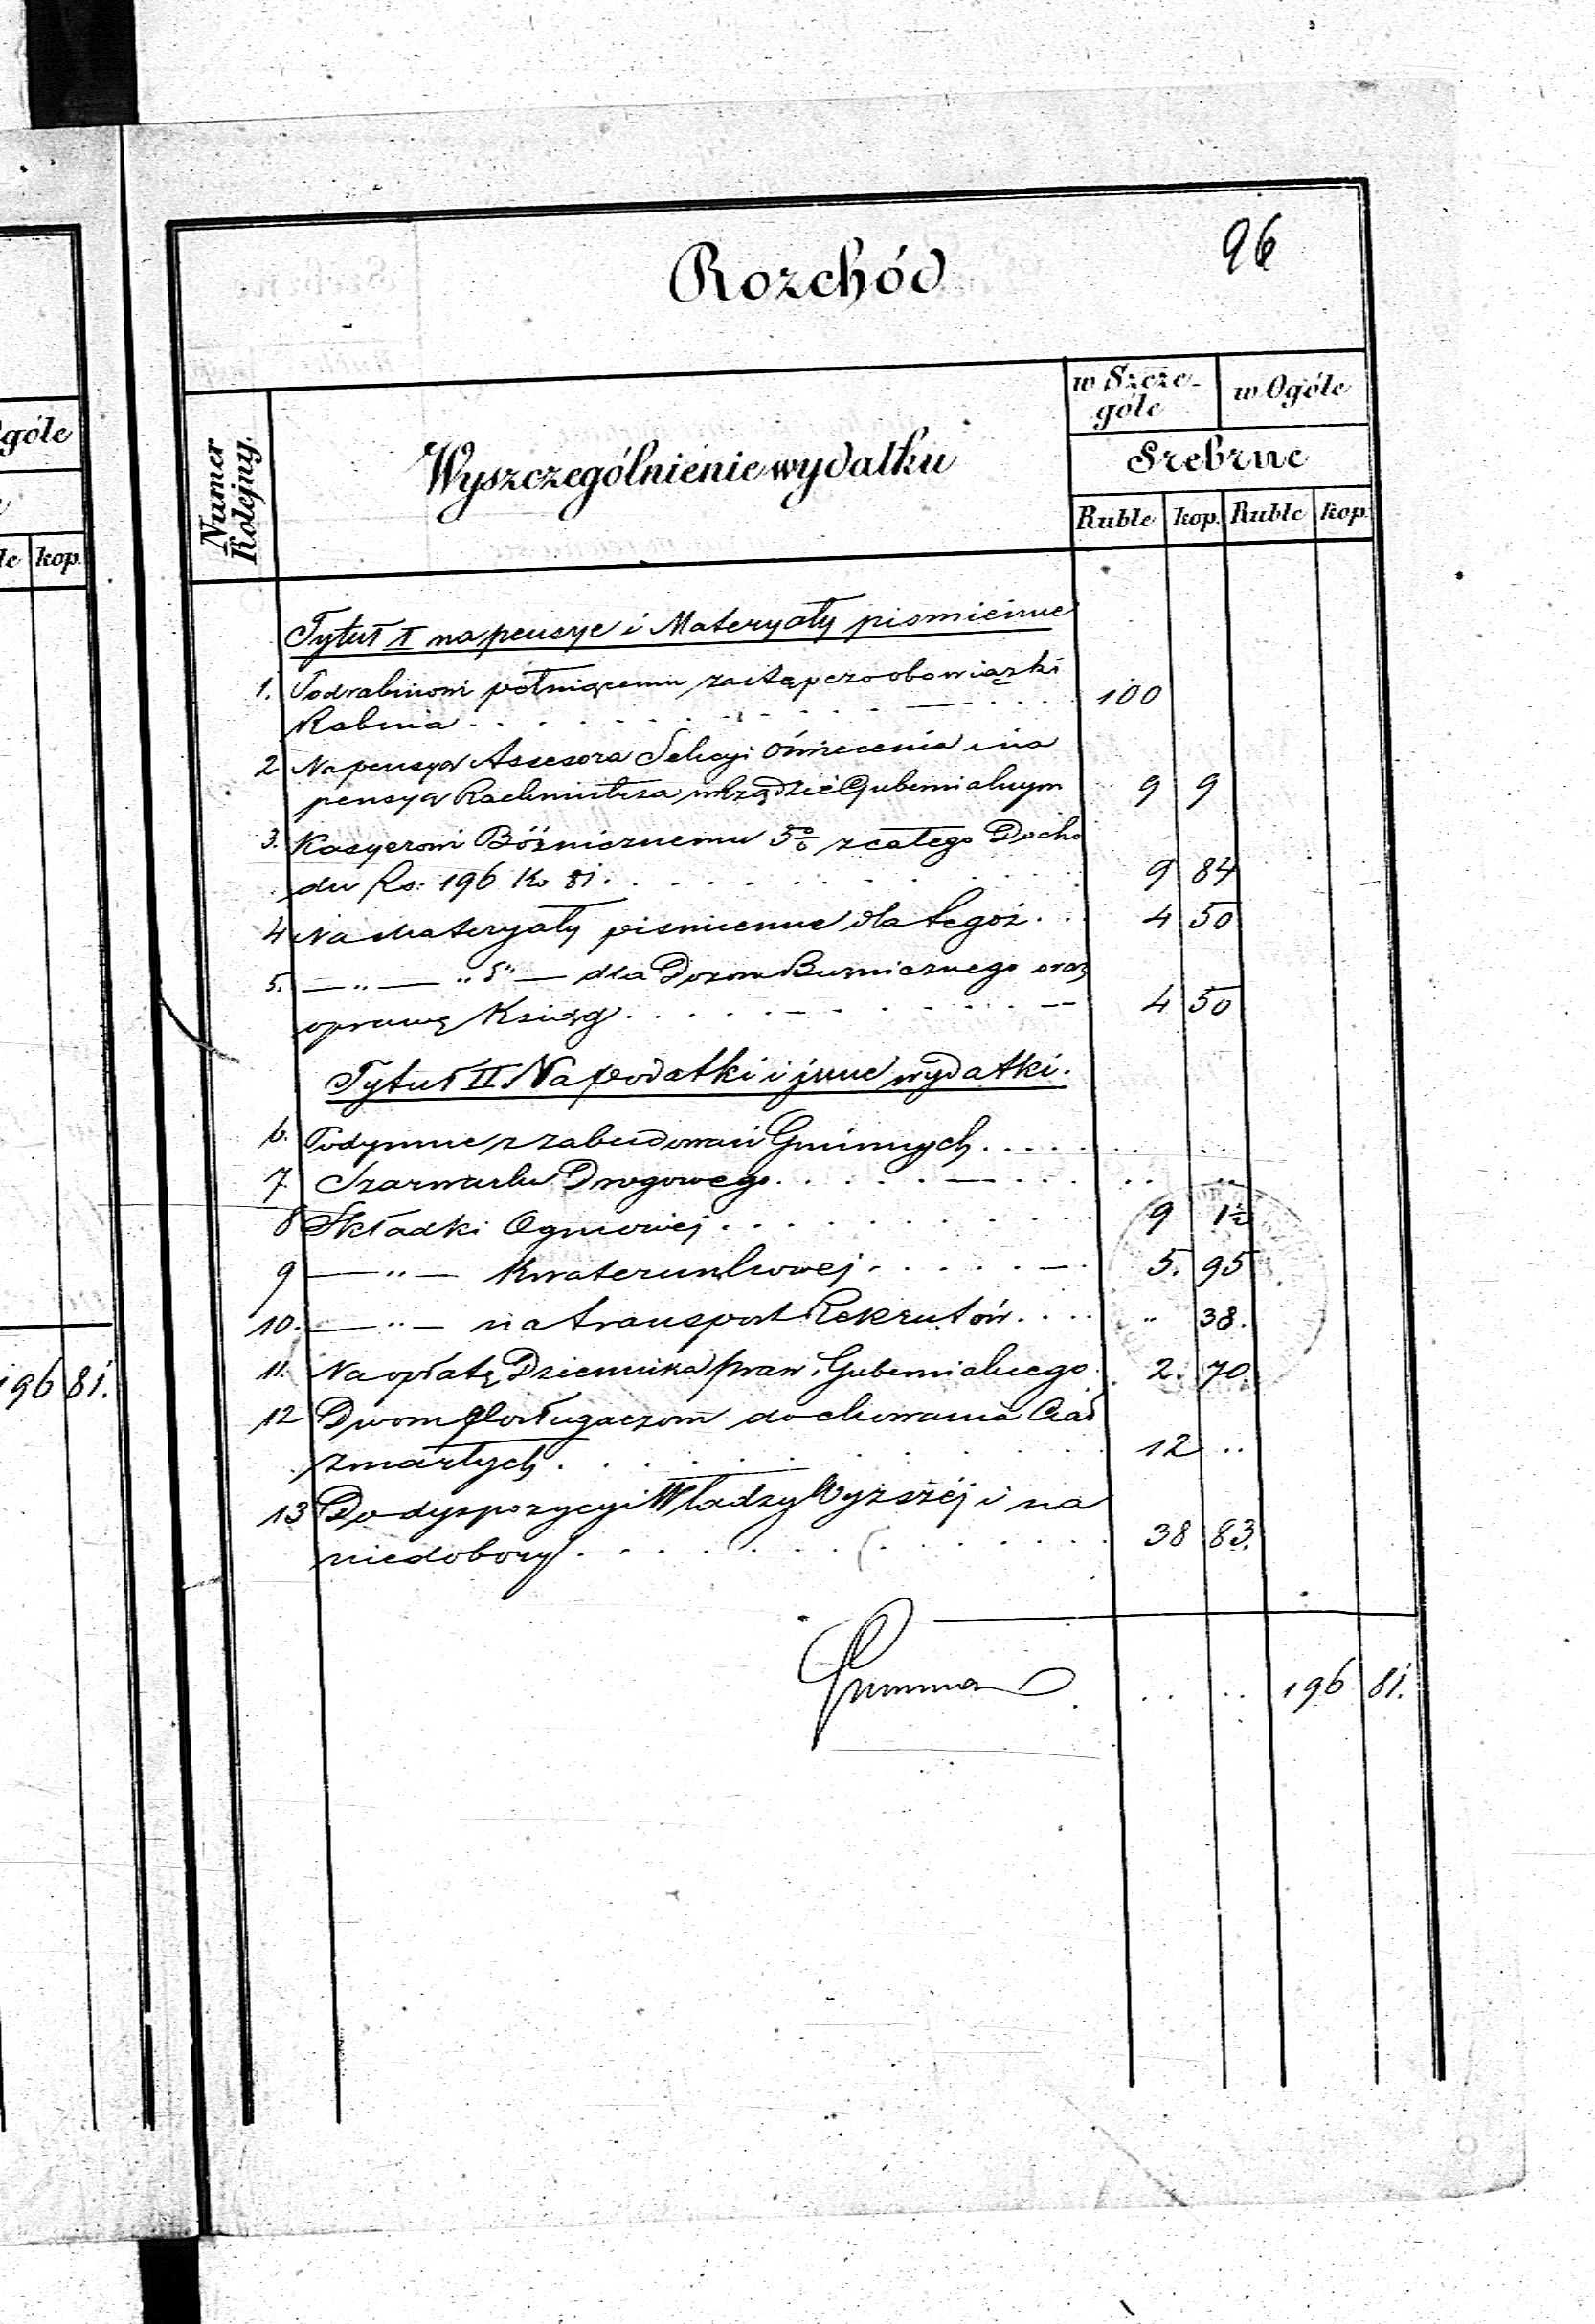 góle
le kop.
196 81.
96
Rozchód
Numer Kolejny.
Wyszczególnienie wydatku
w Szcze-
góle
w Ogóle
Srebrne
Ruble kop. Ruble kop.
Tytuł I na pensye i Materyały pismienne
1. Podrabinowi pełniącemu zastępczo obowiązki
Rabina . . . . . 100
2 Na pensyą Assesora Sekcyi Oświecenia i na
pensyą Rachmistrza w Rządzie Gubernialnym 9 9
3. Kasyerowi Bóżnicznemu 5% z całego Docho
du Rs: 196 Ko 81. . . . . 9 84
4 Na Materyały pismienne dla tegoż . . 4 50
5. — „ — „ 5" — dla Dozoru Bużnicznego oraz
oprawę Ksiąg . . . . . 4 50
Tytuł II Na podatki i jnne wydatki.
6. Podymne z zabudowań Gminnych . . . . . . . .
7. Szarwarku Drogowego . . . . . . . .
8 Składki Ogniowej . . . . . 9 1½
9 — „ — Kwaterunkowej . . . . . 5. 95
10. — „ — na transport Rekrutów . . . . „ 38.
11. Na opłatę Dziennika praw i Gubernialnego . 2. 70.
12 Dwom Posługaczom do chowania Ciał
zmarłych . . . . . 12 ..
13 Do dyspozycyi Władzy Wyższéj i na
niedobory . . . . . 38 83.
Summa . . . . 196 81.